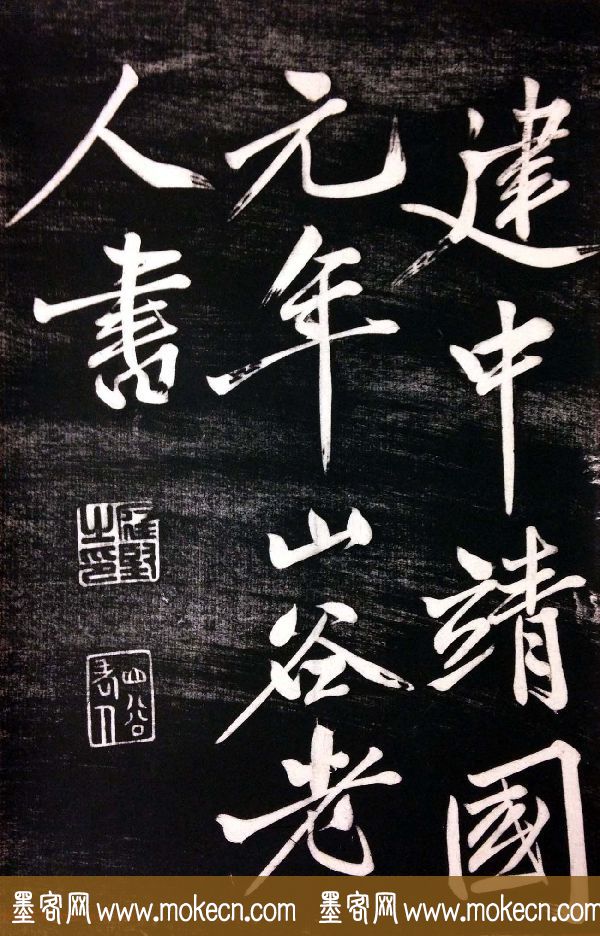 建中靖國
元年山谷老
人書
庭堅之印
山谷老人
墨客网 www.mokecn.com 墨客网 www.mokecn.com